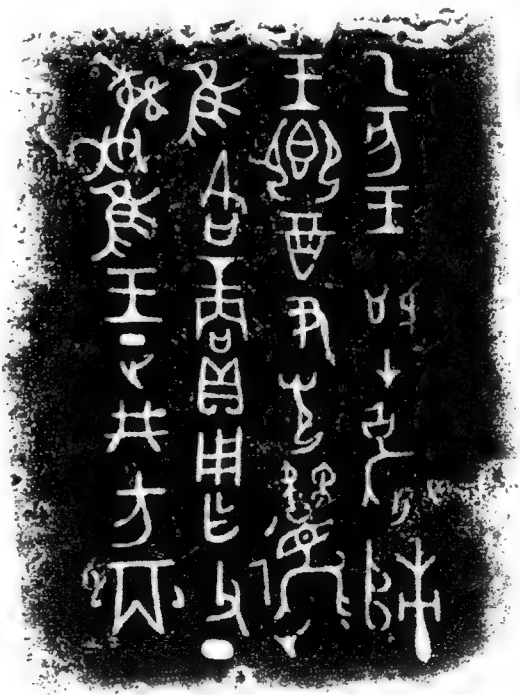 乙亥王才㲋
王鄉酉尹光邐
隹各商貝用乍父丁
彝隹王正井方丙